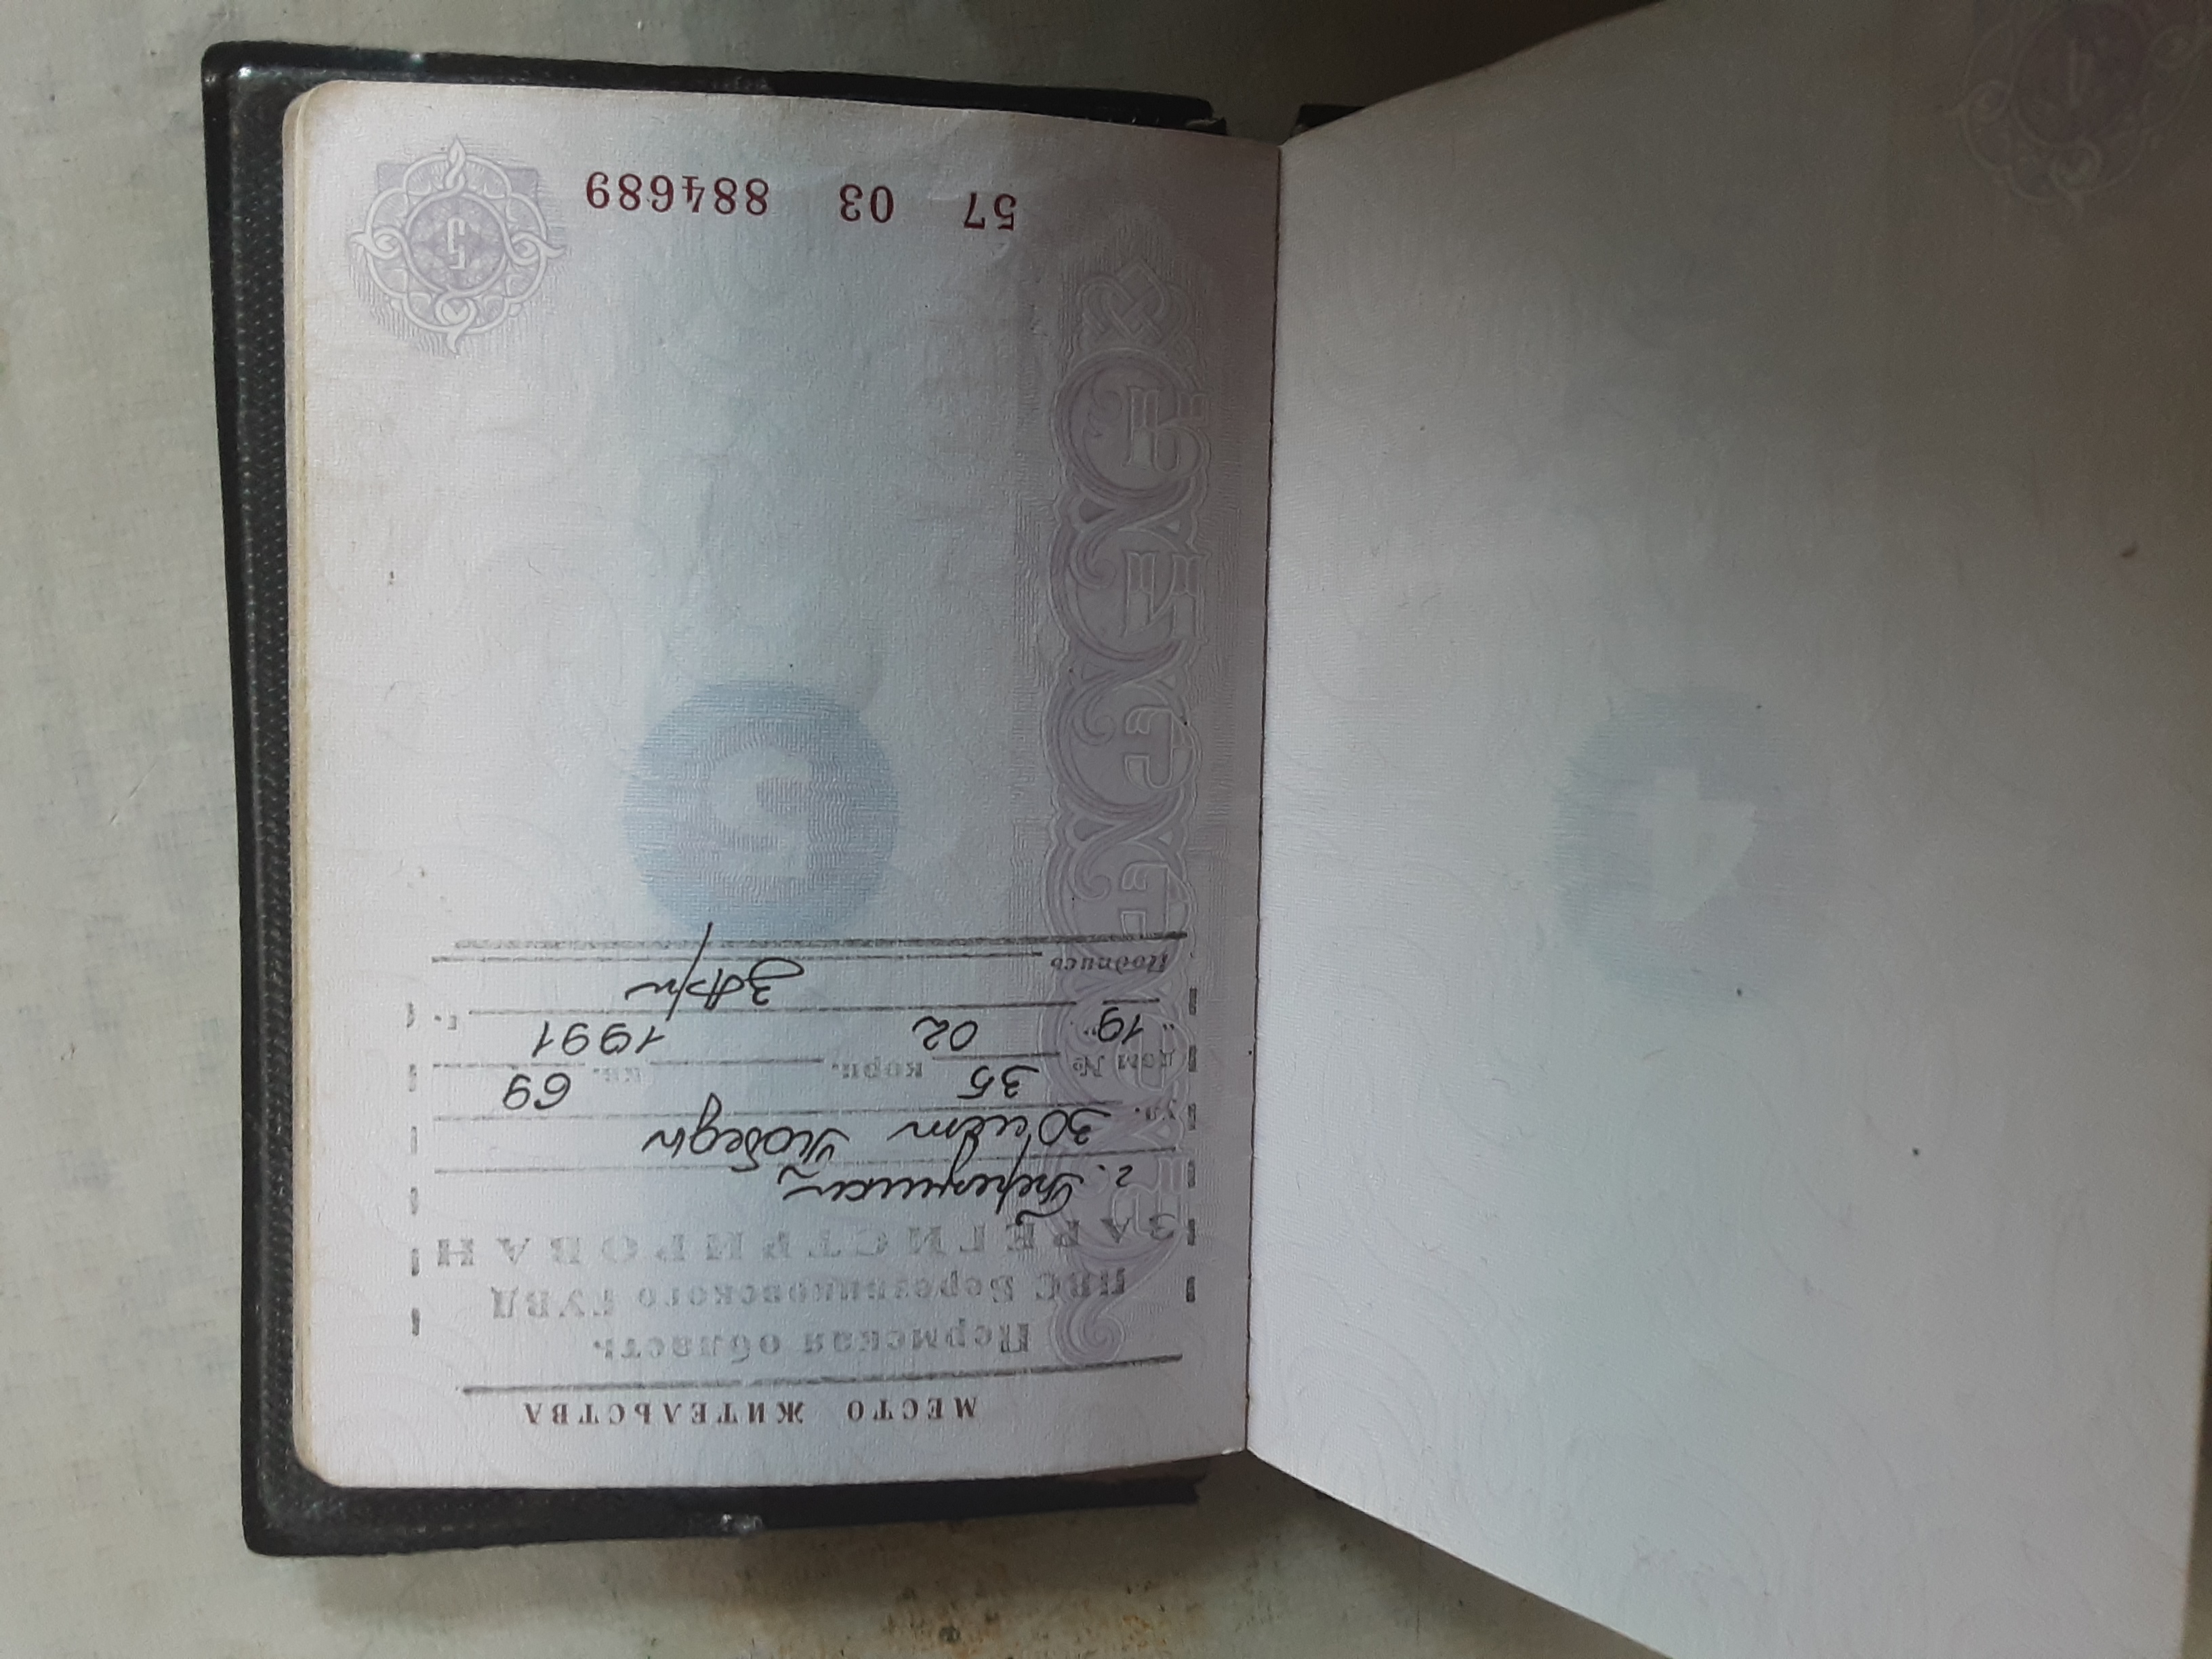 4
МЕСТО ЖИТЕЛЬСТВА
Пермская область
ПВС Березниковского ГУВД
ЗАРЕГИСТРИРОВАН
г. Березники
ул. 30 лет Победы
дом № 35 корп. кв. 69
"19" 02 1991 г.
Подпись
5
57 03 884689
5